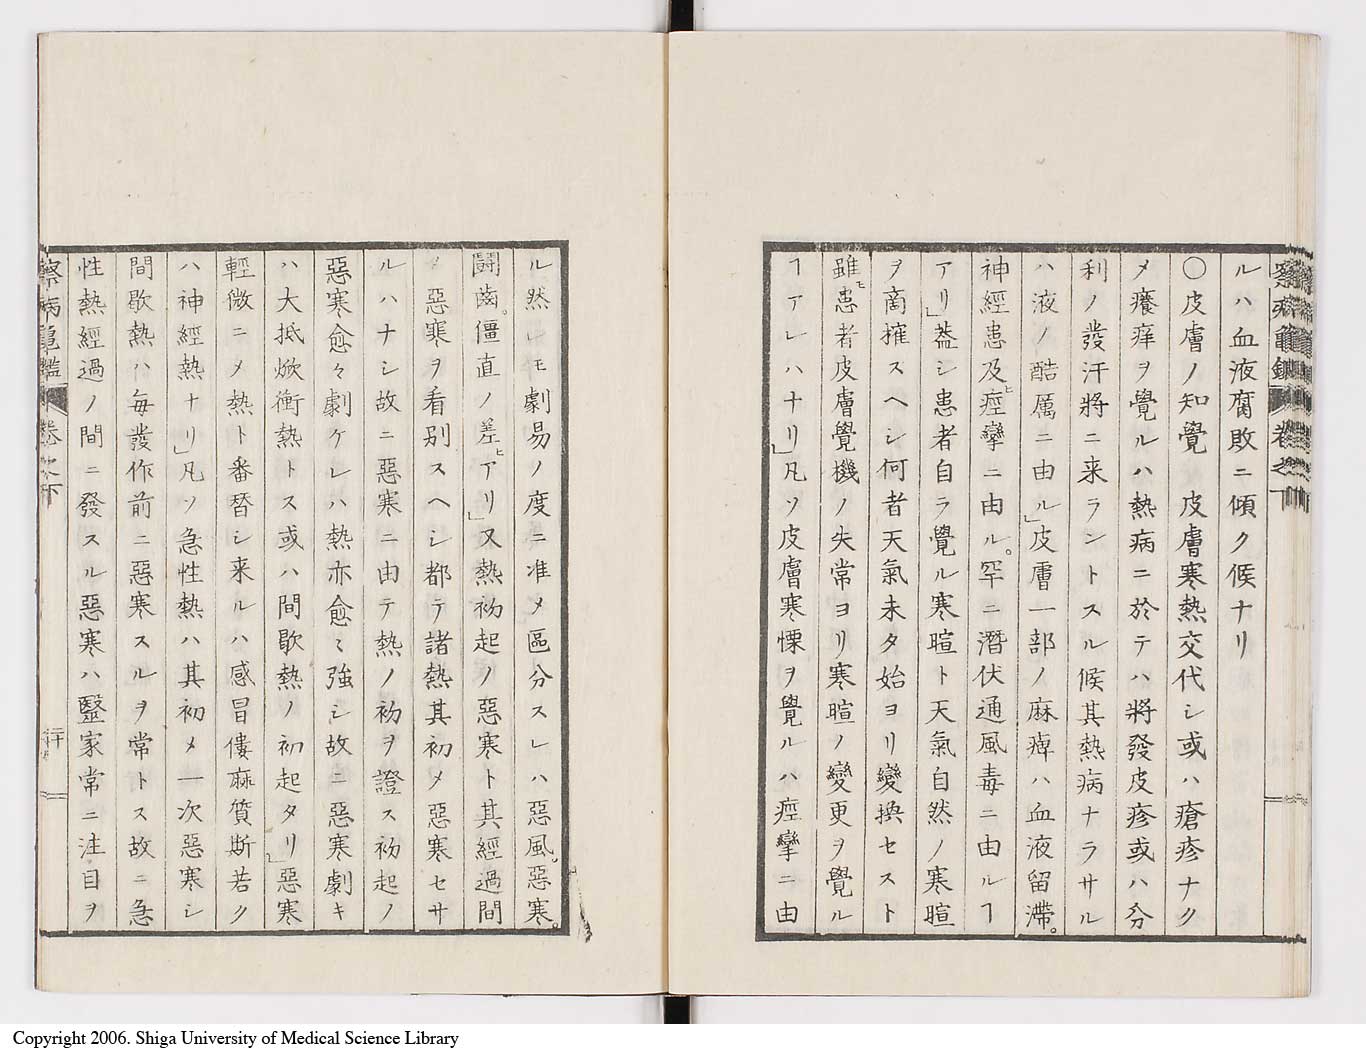 ルハ血液腐敗ニ傾ク候ナリ
〇皮膚ノ知覺 皮膚寒熱交代シ或ハ瘡疹ナク
メ癢痒ヲ覺ルハ熱病ニ於テハ將發皮疹或ハ分
利ノ發汗將ニ来ラントスル候其熱病ナラサル
ハ液ノ酷厲ニ由ル」皮膚一部ノ麻痺ハ血液留滯。
神經患及ヒ痙攣ニ由ル。罕ニ潛伏通風毒ニ由ルヿ
アリ」葢シ患者自ラ覺ル寒暄ト天氣自然ノ寒暄
ヲ商搉スヘシ何者天氣未タ始ヨリ變換セスト
雖モ患者皮膚覺機ノ失常ヨリ寒暄ノ變更ヲ覺ル
ヿアレハナリ」凡ソ皮膚寒慄ヲ覺ルハ痙攣ニ由
ル然レモ劇易ノ度ニ准メ區分スレハ惡風。惡寒。
鬪齒。僵直ノ差ヒアリ」又熱初起ノ惡寒ト其經過間
ノ惡寒ヲ看別スヘシ都テ諸熱其初メ惡寒セサ
ルハナシ故ニ惡寒ニ由テ熱ノ初ヲ證ス初起ノ
惡寒愈々劇ケレハ熱亦愈〻強シ故ニ惡寒劇キ
ハ大抵焮衝熱トス或ハ間歇熱ノ初起タリ」惡寒
輕微ニメ熱ト番替シ来ルハ感冒僂麻質斯若ク
ハ神經熱ナリ」凡ソ急性熱ハ其初メ一次惡寒シ
間歇熱ハ每發作前ニ惡寒スルヲ常トス故ニ急
性熱經過ノ間ニ發スル惡寒ハ醫家常ニ注目ヲ
察病龜鑑 卷之下 二十
Copyright 2006. Shiga University of Medical Science Library